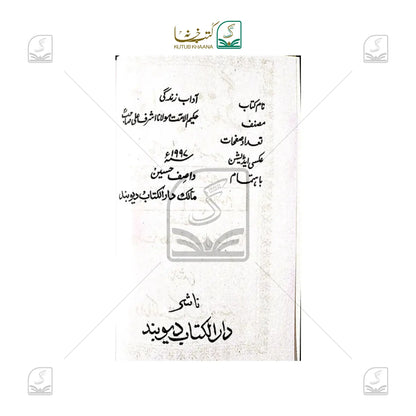 کتب خانہ
KUTUB KHAANA
نام کتاب آداب زندگی
مصنف حکیم الامت مولانا اشرف علی صاحبؒ
تعداد صفحات
عکسی ایڈیشن ۱۹۹۷ء
باہتمام واصف حسین
مالک دارالکتاب دیوبند
ناشر
دارالکتاب دیوبند